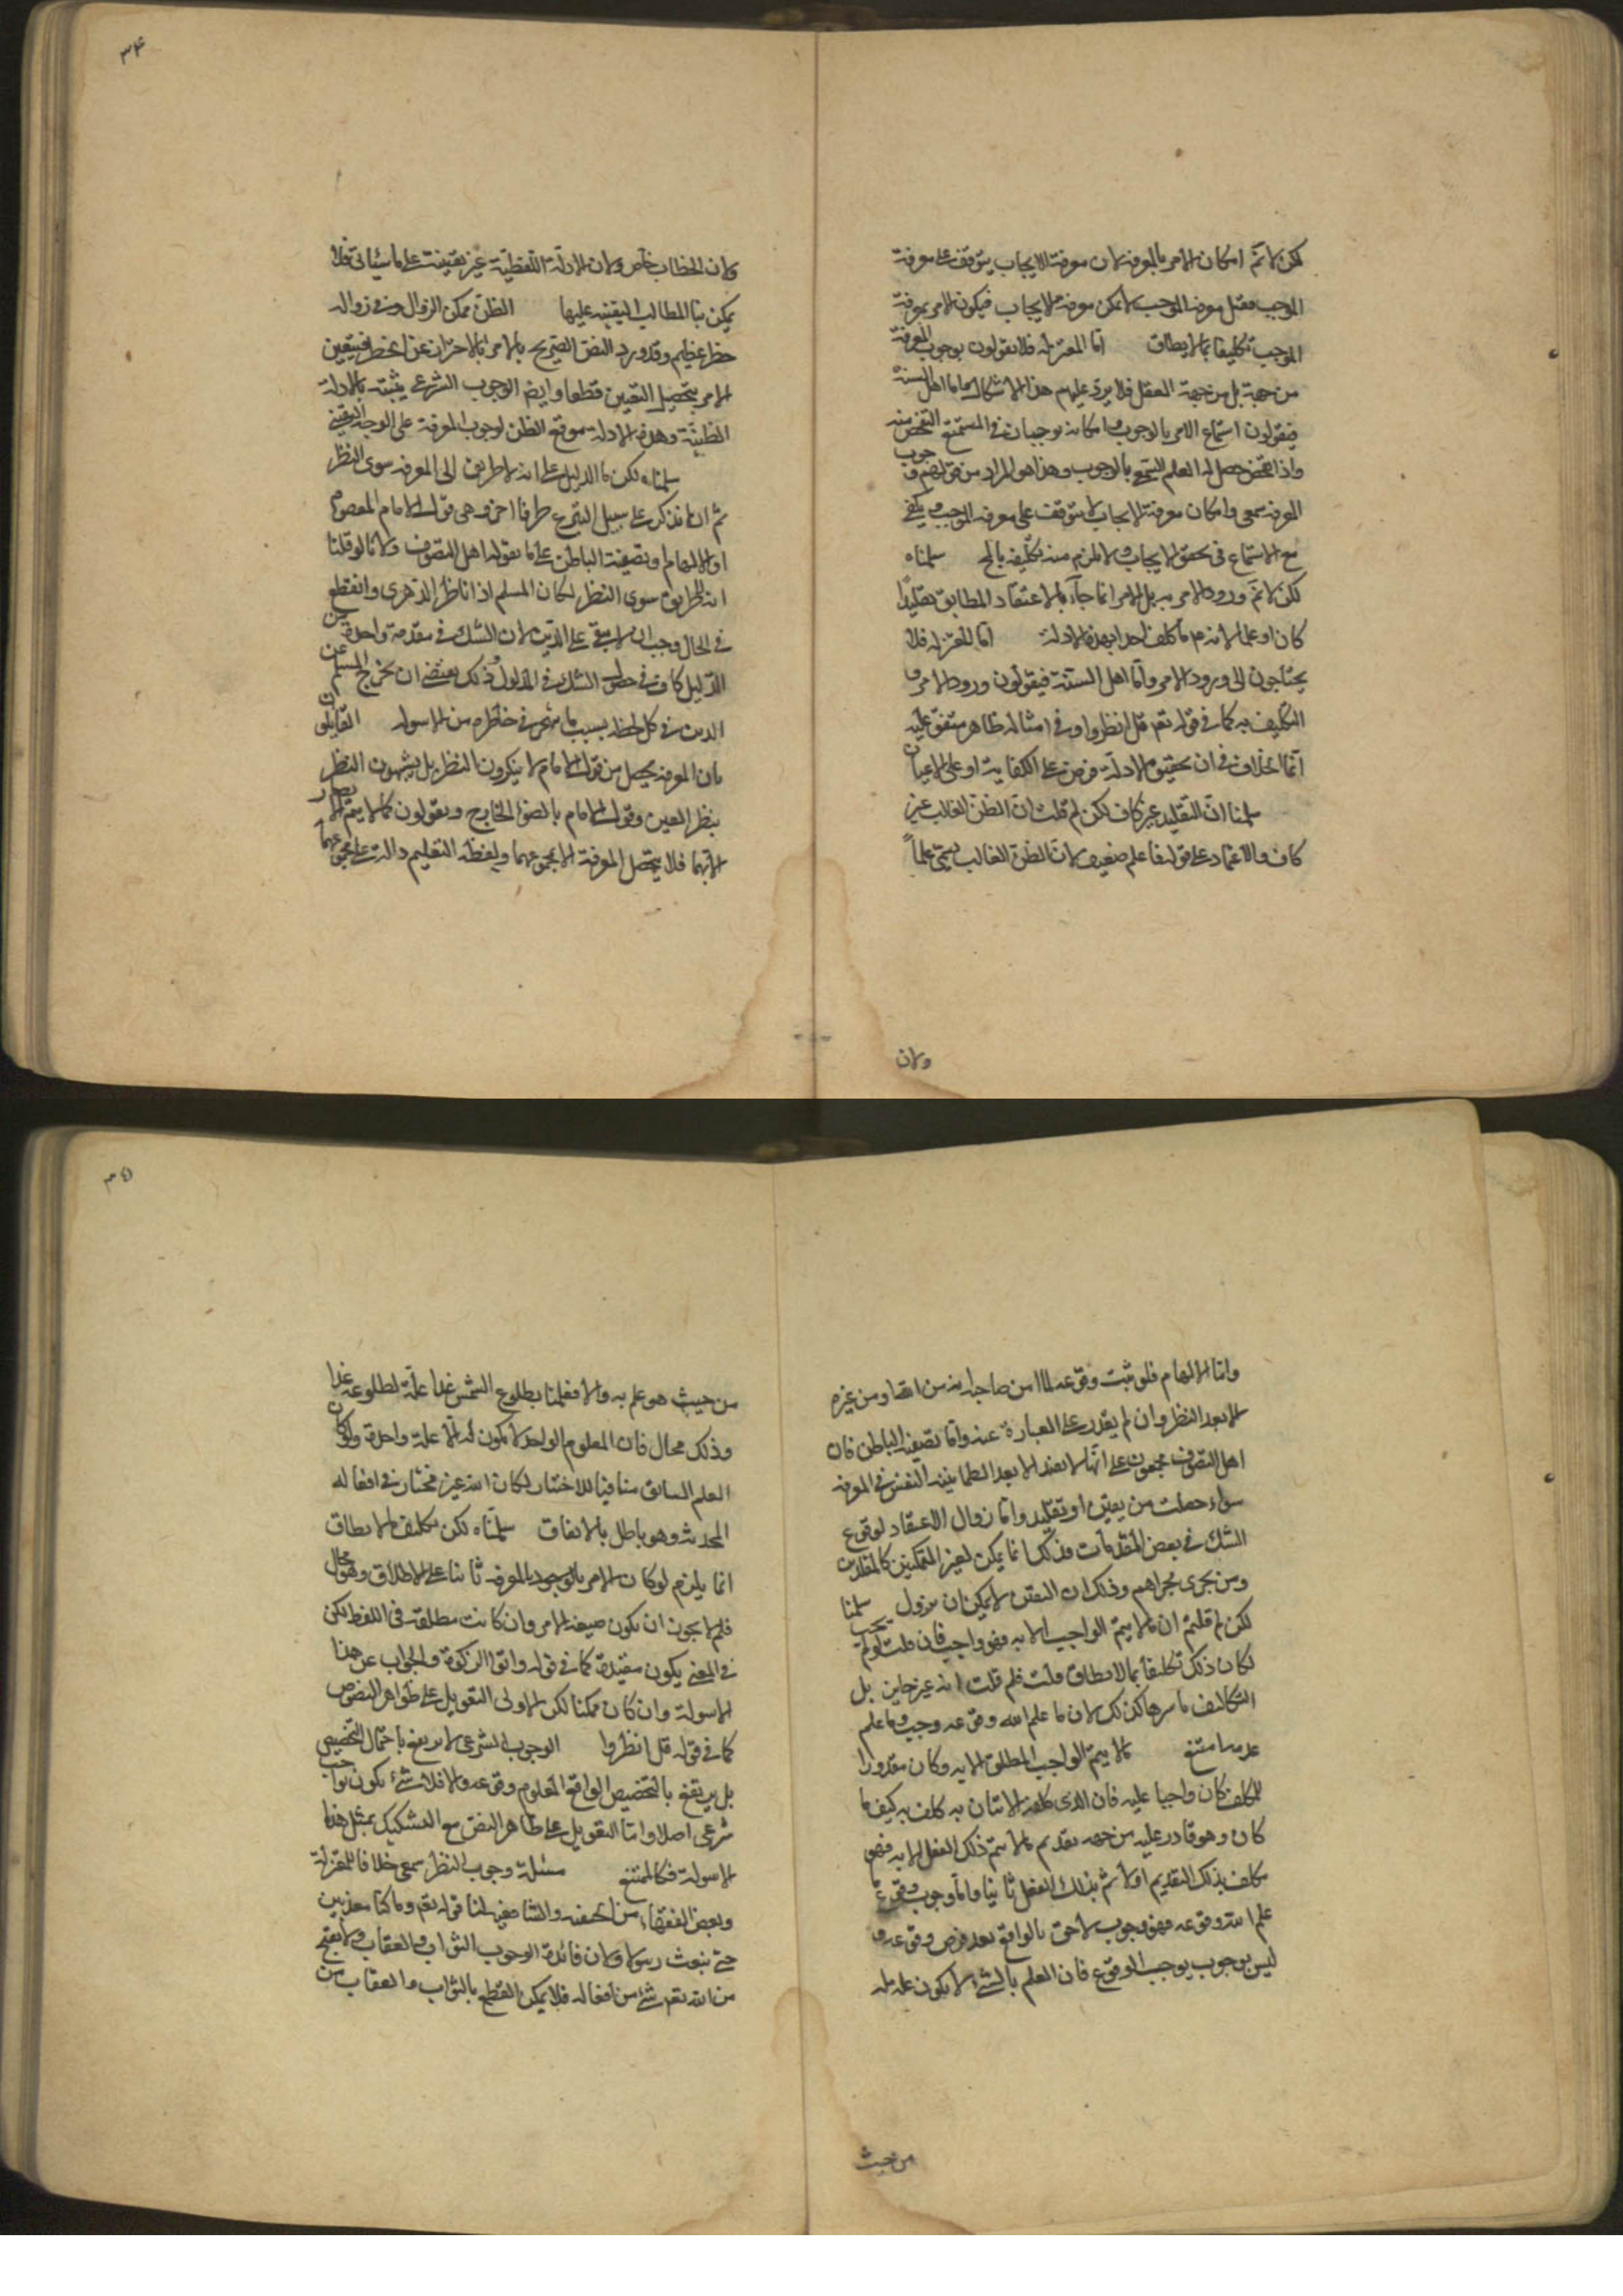 لكن لانم امكان الامر بالمعرفة لان معرفة الايجاب يتوقف على معرفة
الموجب فقبل معرفة الموجب لا يمكن معرفة الايجاب فيكون الامر بمعرفة
الموجب تكليفا بما لايطاق اما المعتزلة فلا يقولون بوجوب المعرفة
من جهته بل من جهة العقل فلا يرد عليهم هذا الاشكال واما اهل السنة
فيقولون استماع الامر بالوجوب وامكانه يوجبان في المستمع التفحص عنه
واذا تفحص حصل له العلم السمعي بالوجوب وهذا هو المراد من قولهم وجوب
المعرفة سمعي وامكان معرفة الايجاب لا يتوقف على معرفة الموجب ويكفي
مع الاستماع في تحقق الايجاب ولا يلزم منه تكليف بالمح سلمناه
لكن لانم ورود الامر به بل الامر انما جاء بالاعتقاد المطابق تقليدًا
كان او علما لانه م ما كلف احدا بهذه الادلة اما المعتزلة فلا
يحتاجون الى ورود الامر واما اهل السنة فيقولون ورود الامر و
التكليف به كما في قوله تعم قل انظروا وفي امثاله ظاهر متفق عليه
انما الخلاف في ان تحقيق الادلة فرض على الكفاية او على الاعيان
سلمنا ان التقليد غير كاف لكن لم قلت ان الظن الغالب غير
كاف والاعتماد على قوله فاعلم ضعيف لان الظن الغالب يسمى علماً
ولان
٣٤
ولان الخطاب خاص ولان الادلة اللفظية غير يقينية على ما سياتى فلا
يمكن بنا المطالب اليقينية عليها الظن ممكن الزوال وفي زواله
خطر عظيم وقد ورد النص الصريح بالامر بالاحتراز عن الخطر فيتعين
الامر بتحصيل اليقين قطعا وايضا الوجوب الشرعي يثبته بالادلة
الظنية وهذه الادلة موقع الظن لوجوب المعرفة على الوجه اليقيني
سلمناه لكن ما الدليل على انه لا طريق الى المعرفة سوى النظر
ثم انا نذكر على سبيل التبرع طرقا اخر وهى قول الامام المعصوم
او الالهام او تصفية الباطن على ما يقوله اهل التصوف ولانا لو قلنا
انه لا طريق سوى النظر لكان المسلم اذا ناظر الدهرى وانقطع
في الحال وجب ان لا يبقى على الدين لان الشك في مقدمة واحدة من
الدليل كاف في حصول الشك في المدلول وذلك يقتضى ان يخرج المسلم عن
الدين في كل لحظة بسبب ما يهجس في خاطره من الاسولة القايلون
بان المعرفة يحصل من قول الامام لا ينكرون النظر بل يشبهون النظر
بنظر العين وقول الامام بالضوء الخارج ويقولون كما لا يتم الابصار
الا بهما فلا يحصل المعرفة الا بمجموعهما ولفظة التعليم دالة على مجموعهما
واما الالهام فلو ثبت وقوعه لما امن صاحبه انه من الله او من غيره
الا بعد النظر وان لم يقدر على العبارة عنه واما تصفية الباطن فان
اهل التصوف مجمعون على انها لا يفيد الا بعد الطمانينة النفس في المعرفة
سواء حصلت من يقين او تقليد واما زوال الاعتقاد لوقوع
الشك في بعض المقدمات فذلك انما يمكن لغير المتمكنين كالمقلدين
ومن يجرى مجراهم وذلك ان اليقين لا يمكن ان يزول سلمنا
لكن لم قلتم ان ما لا يتم الواجب الا به فهو واجب فان قلت لو لم يجب
لكان ذلك تكليفا بما لا يطاق قلت فلم قلت انه غير جايز بل
التكاليف باسرها كذلك لان ما علم الله وقوعه وجب وما علم
عدمه امتنع ما لا يتم الواجب المطلق الا به وكان مقدورا
للمكلف كان واجبا عليه فان الذى كلف الاتيان به كلف به كيف ما
كان وهو قادر عليه من جهة تقديم ما لا يتم ذلك الفعل الا به فهو
مكلف بذلك التقديم اولا ثم بذلك الفعل ثانيا واما وجوب وقوع
علم الله وقوعه فهو وجوب لاحق بالواقع بعد فرض وقوعه و
ليس بوجوب يوجب الوقوع فان العلم بالشئ لا يكون علة له
من حيث
٣٥
من حيث هو علم به والا فعلمنا بطلوع الشمس غدا علة لطلوعه غدا
وذلك محال فان المعلوم الواحد لا يكون له الا علة واحدة ولو كان
العلم السابق منافيا للاختيار لكان الله غير مختار في افعاله
المحدثه وهو باطل بالاتفاق سلمناه لكن تكليف ما لا يطاق
انما يلزم لو كان الامر بالوجود بالمعرفة ثابتا على الاطلاق وهو محال
فلم لا يجوز ان يكون صيغة الامر وان كانت مطلقة في اللفظ لكن
في المعنى يكون مقيدة كما في قوله واتوا الزكوة والجواب عن هذا
الاسولة وان كان ممكنا لكن الاولى التعويل على ظواهر النصوص
كما في قوله قل انظروا الوجوب الشرعى لا يرتفع باحتمال التخصيص
بل يرتفع بالتخصيص الواقع المعلوم وقوعه والا فلا شئ يكون بواجب
شرعى اصلا واما التعويل على ظاهر النص مع التشكيك بمثل هذه
الاسولة فكالممتنع مسئلة وجوب النظر سمعى خلافا للمعتزلة
وبعض الفقهاء من الحنفية والشافعية لنا قوله تعم وما كنا معذبين
حتى نبعث رسولا ولان فائدة الوجوب الثواب والعقاب ولا يقبح
من الله تعم شئ من افعاله فلا يمكن القطع بالثواب والعقاب من